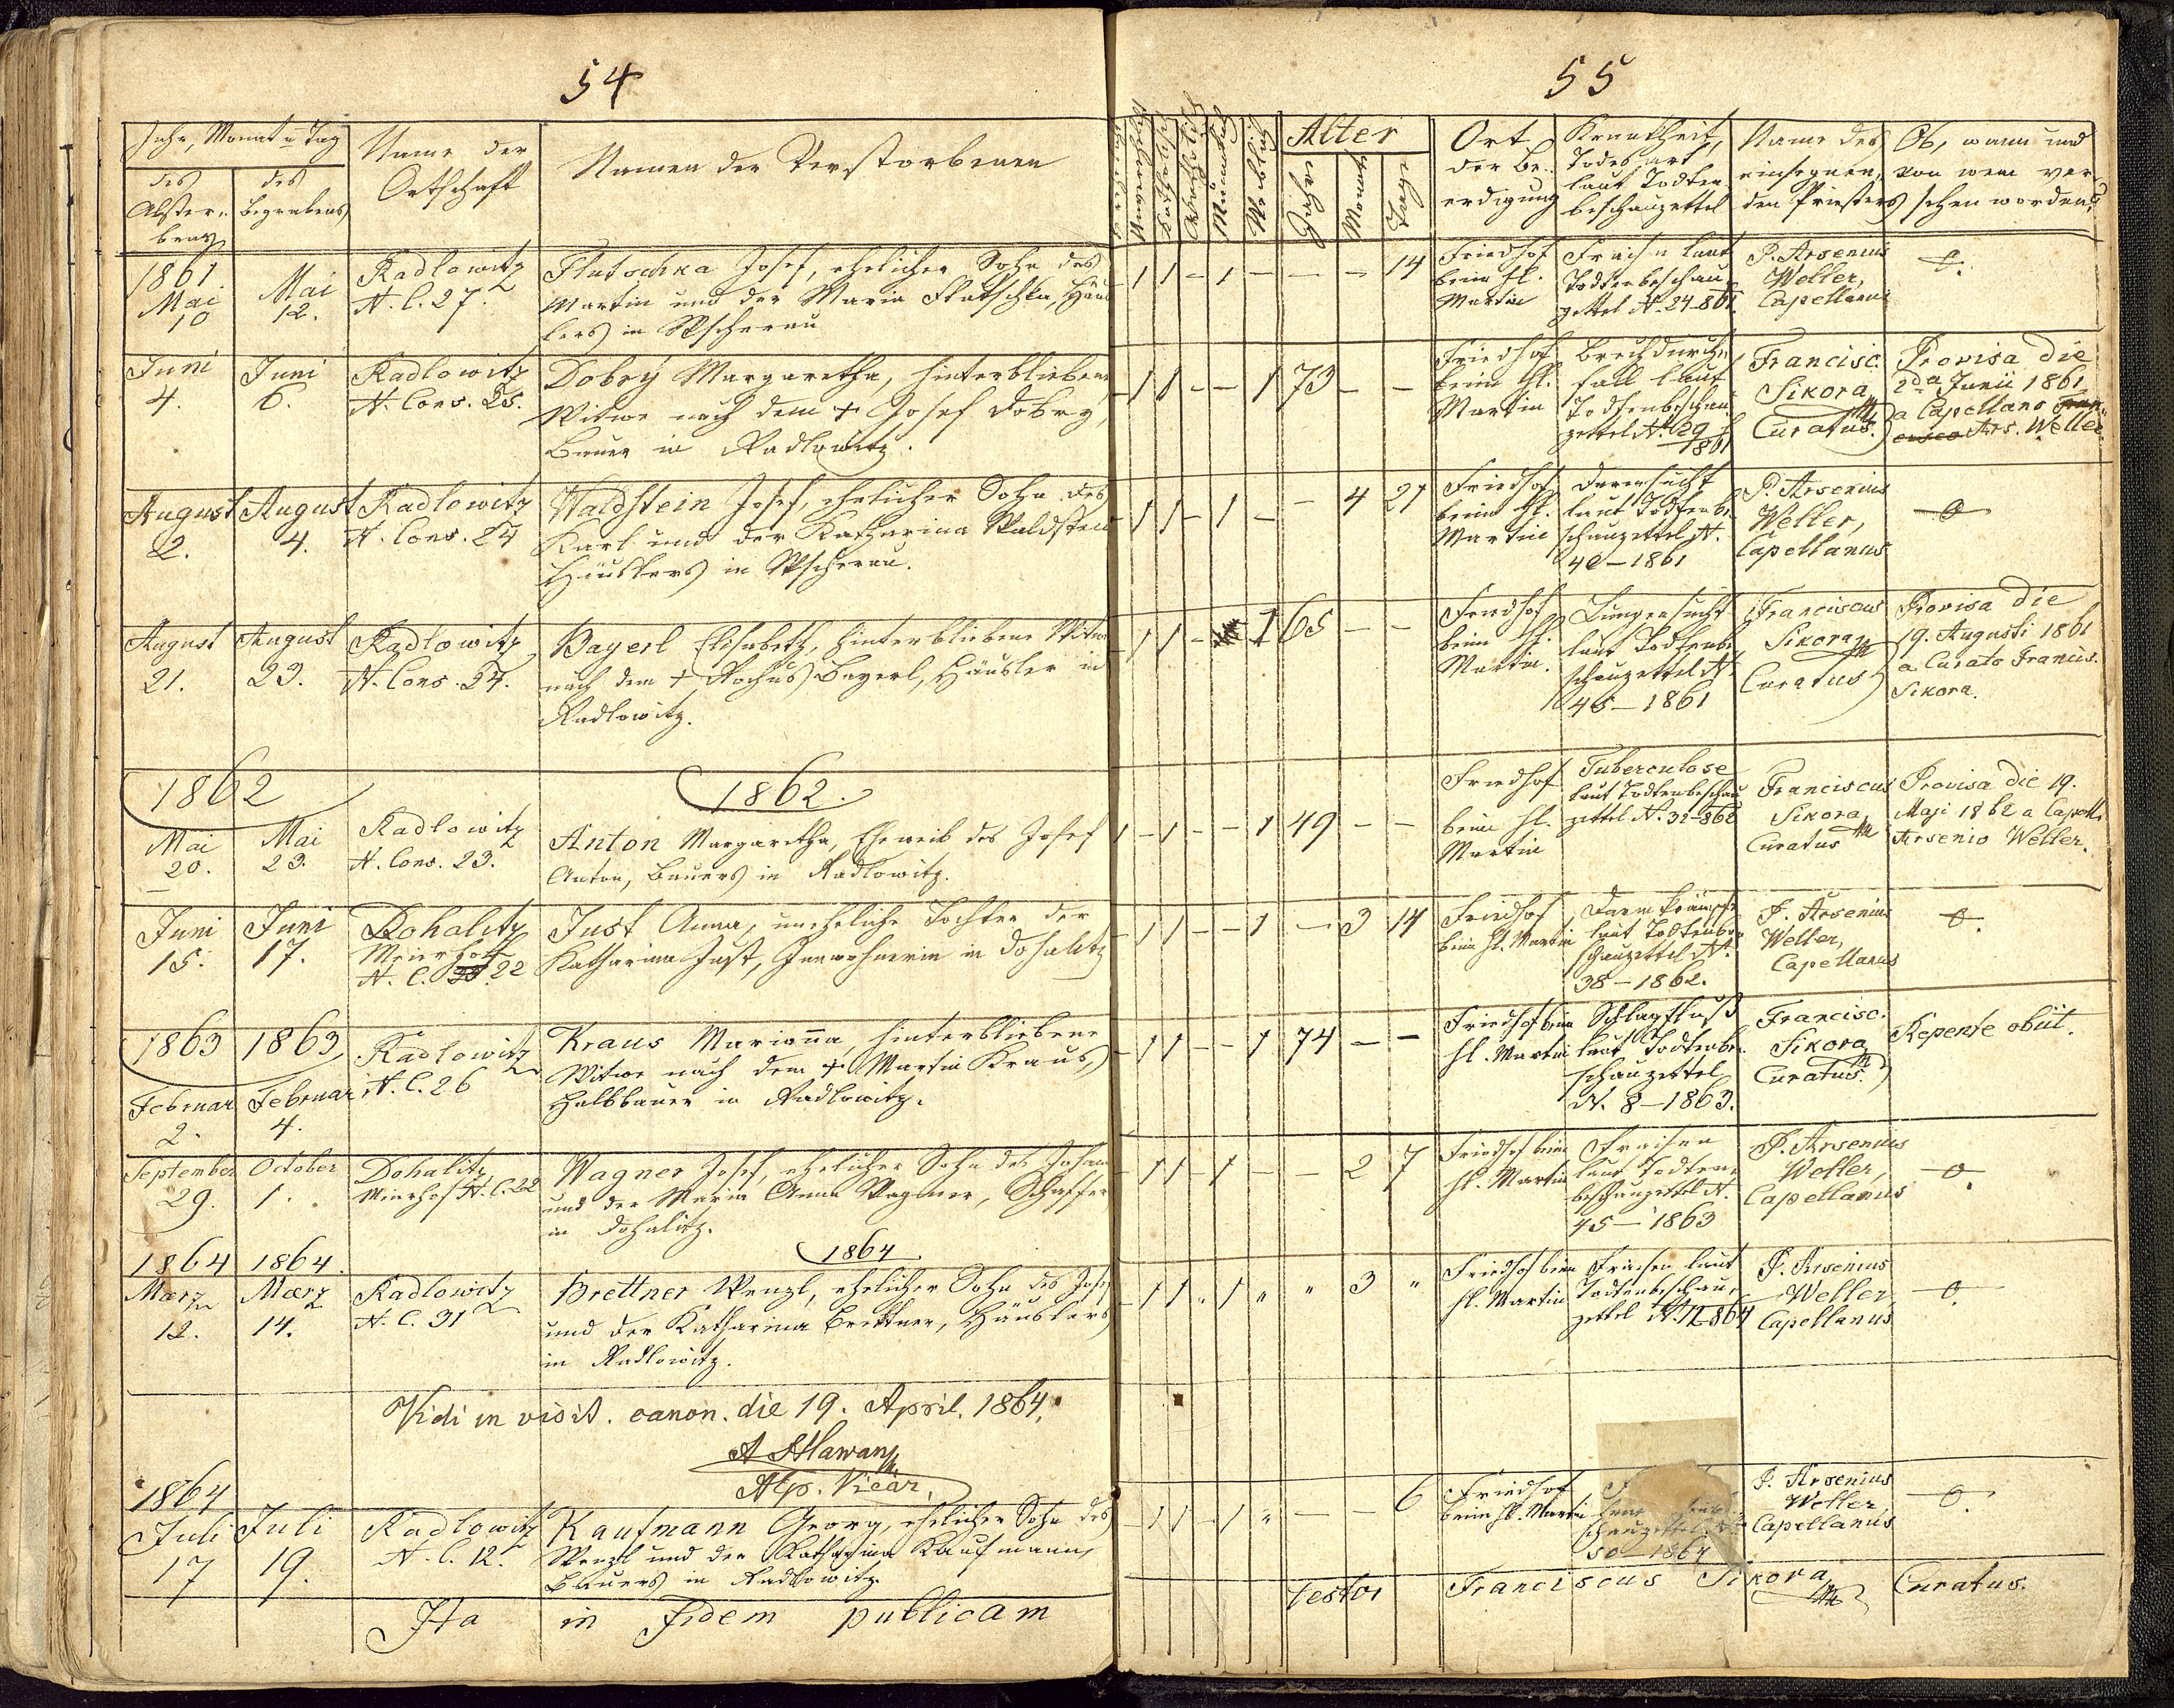 54
Jahr, Monat u Tag
des Abster-
bens
des
Begrabens
Name der
Ortschaft
Namen der Verstorbenen
1861
Mai
10
Mai
12.
Radlowitz
N. C. 27.
Flutschka Josef, ehelicher Sohn des
Martin und der Maria Flutschka, Häus
lers in Wscherau
Juni
4.
Juni
6.
Radlowitz
N. Cons. 25.
Dobrý Margaretha, hinterbliebene
Witwe nach dem + Josef Dobry,
Bauer in Radlowitz.
August
2.
August
4.
Radlowitz
N. Cons. 24
Waldstein Josef, ehelicher Sohn des
Karl und der Katharina Waldstein
Häuslers in Wscherau.
August
21.
August
23.
Radlowitz
N. Cons. 34.
Bayerl Elisabeth, hinterbliebene Witwe
nach dem + Rochus Bayerl, Häusler in
Radlowitz.
1862
1862.
Mai
20.
Mai
23.
Radlowitz
N. Cons. 23.
Anton Margaretha, Eheweib des Josef
Anton, Bauers in Radlowitz.
Juni
15.
Juni
17.
Dohalitz
Meierhof
N. C. 22
Just Anna, uneheliche Tochter der
Katharina Just, Innwohnerin in Dohalitz
1863
1863
Februar
2.
Februar
4.
Radlowitz
N. C. 26
Kraus Marianna, hinterbliebene
Witwe nach dem + Martin Kraus,
Halbbauer in Radlowitz.
September
29.
October
1.
Dohalitz
Meierhof N. C. 22
Wagner Josef, ehelicher Sohn des Johann
und der Maria Anna Wagner, Schaffer
in Dohalitz.
1864
1864.
1864
Marz
12.
Marz
14.
Radlowitz
N. C. 31
Brettner Wenzl, ehelicher Sohn des Josef
und der Katharina Brettner, Häuslers
in Radlowitz.
Vidi in visit. canon. die 19. April. 1864.
Vicar.
1864
Juli
17
Juli
19.
Radlowitz
N. C. 12.
Kaufmann Georg, ehelicher Sohn des
Wenzl und der Katharina Kaufmann,
Bauers in Radlowitz.
Ita in fidem publicam
55
Katholisch
Männlich
Weiblich
Alter
Jahre
Monate
Tage
Ort
der Be-
erdigung
Krankheit,
Todesart
laut Todten-
beschauzettel
Name des
einsegnen-
den Priesters
Ob, wann und
von wem ver-
sehen worden?
- 1 1 - 1 - - - 14
Friedhof
beim hl.
Martin
Fraisn laut
Todtenbeschau
zettel N. 24-861.
P. Arsenius
Weller,
Capellanus
0.
- 1 1 - - 1 73 - -
Friedhof
beim hl.
Martin
Brechdurch-
fall laut
Todtenbeschau
zettel N. 29
1861
Francisc.
Sikora
Curatus.
Provisa die
2da Junii 1861
a Capellano
Ars. Weller
- 1 1 - 1 - - 4 27
Friedhof
beim hl.
Martin
Darrsucht
laut Todtenbe-
schauzettel N.
42-1861
P. Arsenius
Weller,
Capellanus
0
- 1 1 - 1 65 - -
Friedhof
beim hl.
Martin.
Lungensucht
laut Todtenbe-
schauzettel N.
46-1861
Franciscus
Sikora
Curatus
Provisa die
19. Augusti 1861
a Curato Francis.
Sikora.
1 - 1 - - 1 49 - -
Friedhof
beim hl.
Martin
Tuberculose
laut Todtenbeschau
zettel N. 32-862
Franciscus
Sikora
Curatus
Provisa die 19.
Maji 1862 a Capell.
Arsenio Weller.
- 1 1 - - 1 - 3 14
Friedhof
beim hl. Martin
Darmkrämpfe
laut Todtenbe-
schauzettel N.
38-1862.
P. Arsenius
Weller,
Capellanus
0.
- 1 1 - - 1 74 - -
Friedhof beim
hl. Martin
Schlagfluß
laut Todtenbe-
schauzettel
N. 8-1863.
Francisc.
Sikora
Curatus.
Repente obiit.
- 1 1 - 1 - - 2 7
Friedhof beim
hl. Martin
Fraisen
laut Todten-
beschauzettel N.
45-1863
P. Arsenius
Weller,
Capellanus
0.
- 1 1 " 1 " " 3 "
Friedhof beim
hl. Martin
Fraisen laut
Todtenbeschau-
zettel N. 12-864
P. Arsenius
Weller
Capellanus
0.
- 1 1 - 1 " - - 6
Friedhof
beim hl. Martin
schauzettel N.
50-1864
P. Arsenius
Weller
Capellanus
0.
testor Franciscus Sikora Curatus.